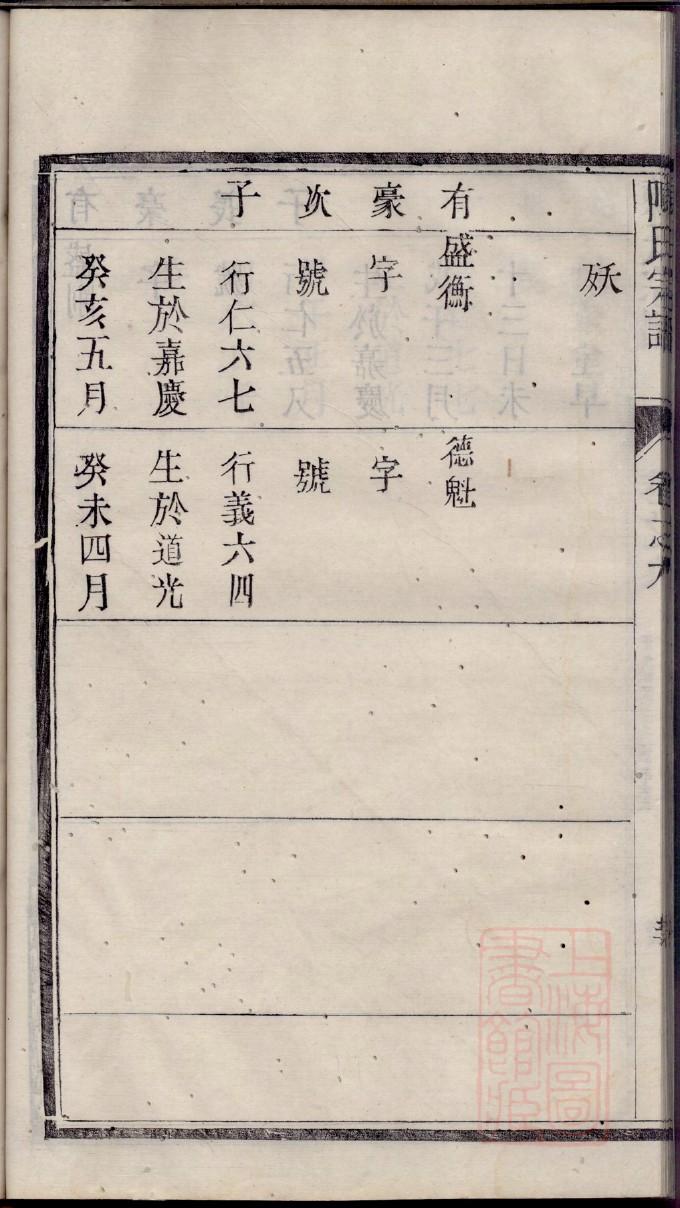 陳氏宗譜
卷之九
殀
有豪次子
盛衡
字
號
行仁六七
生於嘉慶
癸亥五月
德魁
字
號
行義六四
生於道光
癸未四月
上海圖書館藏